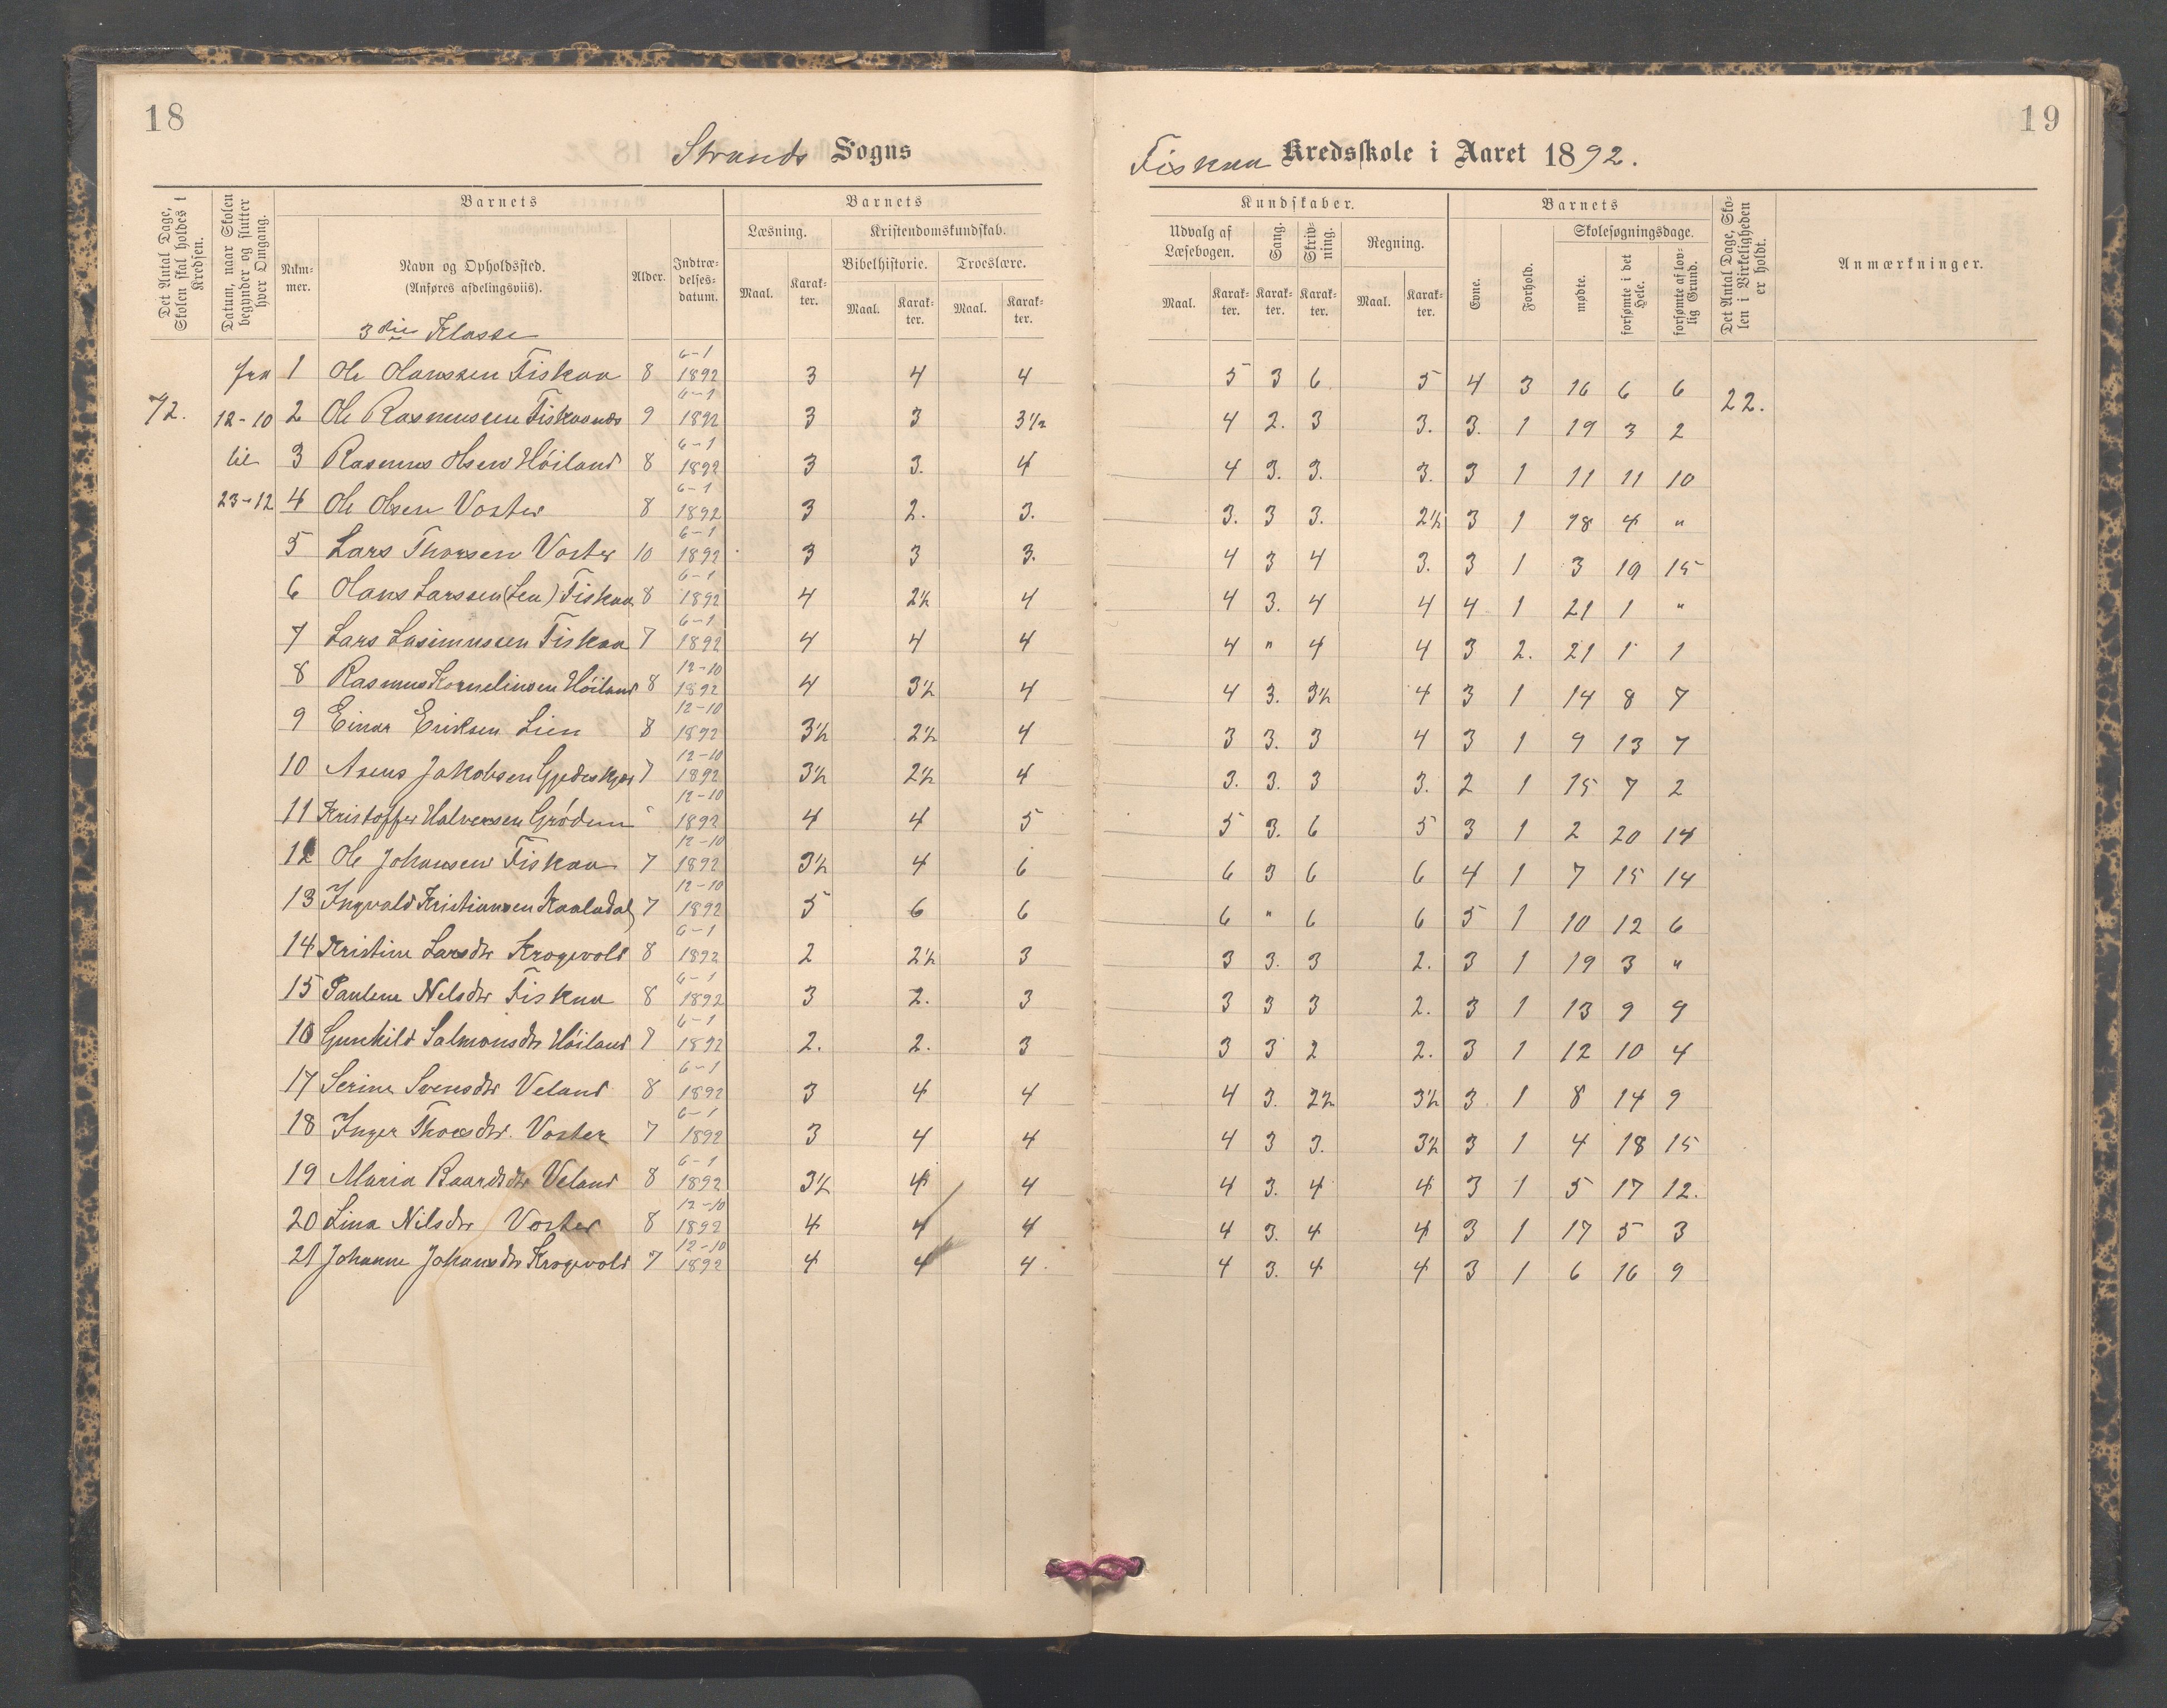 18
19
Strands Sogns
Fiskaa Kredsskole i Aaret 1892.
Det Antal Dage, Skolen skal holdes i Kredsen.
Datum, naar Skolen begynder og slutter hver Omgang.
Barnets
Nummer.
Navn og Opholdssted. (Anføres afdelingsviis).
Alder.
Indtrædelsesdatum.
Barnets
Læsning.
Maal. Karakter.
Kristendomskundskab.
Bibelhistorie.
Maal. Karakter.
Troeslære.
Maal. Karakter.
Kundskaber.
Udvalg af Læsebogen.
Maal. Karakter.
Sang.
Karakter.
Skrivning.
Karakter.
Regning.
Maal. Karakter.
Barnets
Evne.
Forhold.
Skolesøgningsdage.
mødte.
forsømte i det Hele.
forsømte af lovlig Grund.
Det Antal Dage, Skolen i Virkeligheden er holdt.
Anmærkninger.
3die Klasse
fra 1 Ole Hanssen Fiskaa 8 6-1 1892 3 4 4 5 3 6 5 4 3 16 6 6
72. 12-10 2 Ole Rasmussen Fiskaanæs 9 6-1 1892 3 3 3½ 4 2. 3 3. 3. 1 19 3 2 22.
til 3 Rasmus Olsen Höiland 8 6-1 1892 3 3. 4 4 3. 3. 3. 3 1 11 11 10
23-12 4 Ole Olsen Voster 8 6-1 1892 3 2. 3. 3. 3 3. 2½ 3 1 18 4 "
5 Lars Thorsen Voster 10 6-1 1892 3 3 3. 4 3 4 3. 3 1 3 19 15
6 Hans Larssen (Lea) Fiskaa 8 6-1 1892 4 2½ 4 4 3. 4 4 4 1 21 1 "
7 Lars Fiskaa 7 6-1 1892 4 4 4 4 " 4 4 3 2. 21 1 1
8 Rasmus Kornelinsen Höiland 8 12-10 1892 4 3½ 4 4 3. 3½ 4 3 1 14 8 7
9 Einar Eriksen Lien 8 12-10 1892 3½ 2½ 4 3 3. 3 4 3 1 9 13 7
10 Asens Jakobsen 7 12-10 1892 3½ 2½ 4 3. 3. 3 3. 2 1 15 7 2
11 Kristoffer Halvorsen Grödem " 12-10 1892 4 4 5 5 3. 6 5 3 1 2 20 14
12 Ole Johansen Fiskaa 7 12-10 1892 3½ 4 6 6 3 6 6 4 1 7 15 14
13 Ingvald Kristiansen Kaaladal 7 12-10 1892 5 6 6 6 " 6 6 5 1 10 12 6
14 Kristine Larsdtr Krogevold 8 6-1 1892 2 2½ 3 3 3. 3 2. 3 1 19 3 "
15 Paulene Nelsdtr Fiskaa 8 6-1 1892 3 2. 3 3 3 3 2. 3 1 13 9 9
16 Gunhild Salmonsdtr Höiland 7 6-1 1892 2. 2. 3 3 3 2 2. 3 1 12 10 4
17 Serine Svensdtr Veland 8 6-1 1892 3 4 4 4 3. 2½ 3½ 3 1 8 14 9
18 Inger Thorsdtr. Voster 7 6-1 1892 3 4 4 4 3 3. 3½ 3 1 4 18 15
19 Maria Baardsdtr Veland 8 6-1 1892 3½ 4 4 4 3. 4 4 3 1 5 17 12.
20 Lina Nilsdtr Voster 8 12-10 1892 4 4 4 4 3. 4 4 3 1 17 5 3
21 Johanne Johansdtr Krogevold 7 12-10 1892 4 4 4. 4 3. 4 4 3 1 6 16 9